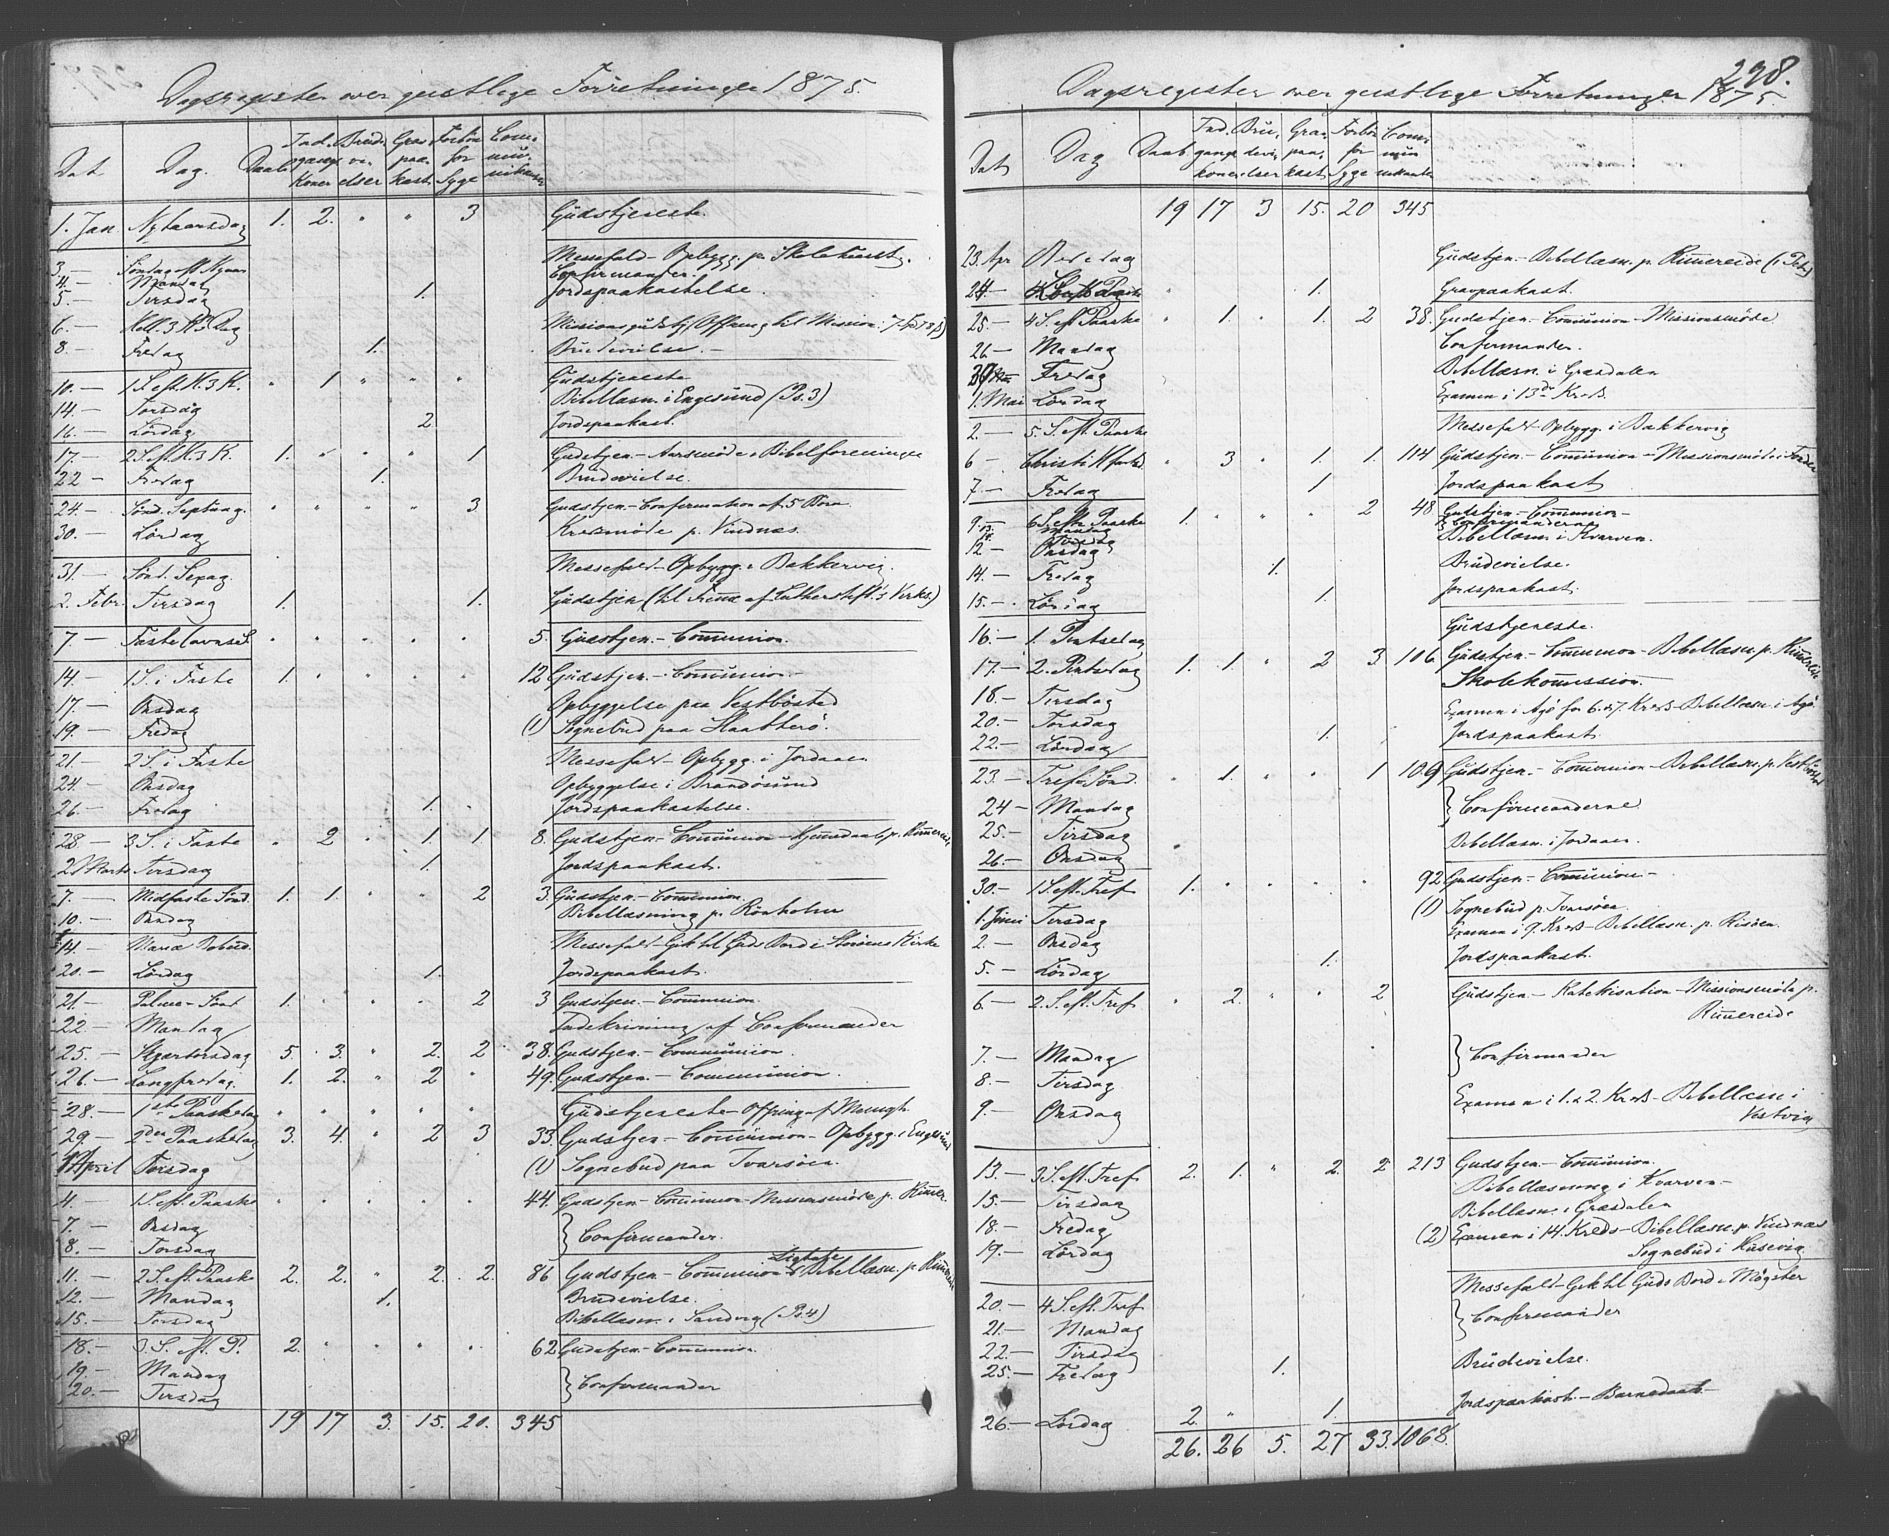 Dagsregister over geistlige Forretninger 1875.
Dat Dag. Daab Ind- gangs Koner Brude- vi- elser Grav- paa- kast Forbön for Syge Com- mu- nikanter
1. Jan Nytaarsdag 1. 2. " " 3 Gudstjeneste.
3. — Söndag eft. Nyaar Messefald - Opbygg. p. Skolehuset.
4. — Mandag Confirmander.
5. — Tirsdag 1. Jordspaakastelse.
6. — Hell. 3 K. Dag Missionsgudstj. Offring til Mission
8. — Fredag 1. Brudevielse. —
10. — 1 S. eft. H. 3 K. " 1 " " " Gudstjeneste
14. — Torsdag Bibellæsn. i Engesund (Ps. 3)
16. — Lördag 2. Jordspaakast.
17. — 2 S. eft. H. 3 K. 1. " " " 1 Gudstjen. - Aarsmöde i Bibelforeningen
22 — Fredag 1. Brudevielse.
24. — Sönd. Septuag. " " " " 3 Gudstjen. - Confirmation af 5 Börn
30. — Lördag Kredsmöde p. Vindnæs.
31. — Sönd. Sexag. Messefald - Opbygg. i Bakkervig.
2. Febr. Tirsdag 1. 1. Gudstjen. (til Fremme af Lutherstift.s Virks.)
7 — Fastelavns S. " " " " " 5. Gudstjen. - Communion.
14. — 1 S. i Faste 1. " " " " 12 Gudstjen. - Communion. -
17. — Onsdag Opbyggelse paa Vestbösted
19. — Fredag (1) Sognebud paa
21. — 2 S. i Faste Messefald - Opbygg. i Jordaaen
24. — Onsdag Opbyggelse i Brandösund
26. — Fredag 1. Jordspaakastelse.
28 — 3 S. i Faste " 2 " 1. 1. 8. Gudstjen. - Communion - Hjemmedaab p. Rimereide
2 Marts Tirsdag 1. Jordspaakast.
7. — Midfaste Sönd. 1. 1. " " 2 3 Gudstjen. - Communion.
10. — Onsdag Bibellæsning p. Rönholm
14. — Mariæ Bebud. Messefald - Gik til Guds Bord i Störens Kirke
20. — Lördag 1. Jordspaakast.
21. — Palme-Sönd 1. " " " 2 3 Gudstjen. - Communion.
22. — Mandag Indskrivning af Confirmander
25. — Skjærtorsdag 5. 3. " 2. 2 38. Gudstjen. - Communion.
26. — Langfredag. 1. 2. " 2 " 49. Gudstjen. - Communion.
28. — 1ste Paaskedag " " " " " Gudstjeneste - Offring af Menigh.
29. — 2den Paaskedag 3. 4. " 2 3 33. Gudstjen. - Communion - Opbygg. i Engesund
1 April Torsdag (1) Sognebud paa Tvarsöen.
4. — 1 S. eft. Paaske " " " " " 44. Gudstjen. - Communion - Missionsmöde p. Rimer.
7. — Onsdag
8. — Torsdag } Confirmander.
11. — 2 S. eft. Paaske 2. 2. " 2. 2. 86 Gudstjen. - Communion - Bibellæsn. p. Rimereide
12. — Mandag 1. Brudevielse.
15. — Torsdag Bibellæsn. i Sandvig (Ps. 4)
18. — 3 S. eft. P. 2. " " " " 62 Gudstjen. - Communion.
19. — Mandag
20. — Tirsdag } Confirmander
19 17 3. 15. 20. 345
238.
Dagsregister over geistlige Forretninger 1875.
Dat Dag Daab Ind- gangs koner Bru- devi- elser Grav- paa- kast Forbön for Syge Com- mun- nikanter
19 17 3 15. 20 345
23. Apr Bededag Gudstjen. - Bibellæsn. p. Rimereide
24 — 1. Gravpaakast.
25. — 4 S. eft. Paaske " 1. " 1. 2 38. Gudstjen. - Communion - Missionsmöde
26. — Mandag Confirmander.
30 — Fredag Bibellæsn. i Græsdalen
1. Mai Lördag Examen i 13de Kreds.
2. — 5. S. eft. Paaske Messefald - Opbygg. i Bakkervig
6 — Christi H. fartsd. " 3 " 1. 1. 114 Gudstjen. - Communion - Missionsmöde i
7. — Fredag 1 Jordspaakast
9. — 6 S. eft. Paaske 1. " " " 2 48 Gudstjen - Communion -
Mandag Confirmanderne
12 — Onsdag Bibellæsn. i Kvarven.
14. — Fredag 1. Brudevielse.
15. — Lördag 1. Jordspaakast.
16. — 1. Pintsedag Gudstjeneste.
17. — 2. Pintsedag 1. 1. " 2 3 106. Gudstjen. - Communion - Bibellæsn. p. Rimereide
18 — Tirsdag Skolekommission.
20. — Torsdag Examen i Agö for 6. & 7. Kreds - Bibellæsn. i Agö
22. — Lördag 1. Jordspaakast.
23. — Tref. Sönd. " 1. " " 1 109 Gudstjen. - Communion - Bibellæsn. p. Vestbösted
24 — Mandag } Confirmanderne
25. — Tirsdag
26. — Onsdag Bibellæsn. i Jordaaen.
30. — 1 S. eft. Tref. 1. " " " " 92 Gudstjen. - Communion -
1. Juni Tirsdag (1) Sognebud p. Tvarsöen.
2. — Onsdag Examen i 9. Kreds - Bibellæsn. p. Risöen.
5. — Lördag 1. Jordspaakast.
6. — 2. S. eft. Tref. " 2. " " 2 Gudstjen - Katekisation - Missionsmöde p. Rimereide
7. — Mandag } Confirmander
8. — Tirsdag
9. — Onsdag Examen i 1. & 2. Kreds - Bibellæsn. i Vestvig
13. — 3 S. eft. Tref. 2. 1. " 2. 2 213 Gudstjen. - Communion.
15. — Tirsdag Bibellæsning i Kvarven -
18. — Fredag Bibellæsn. i Græsdalen
19. — Lördag (2) Examen i 14. Kreds - Bibellæsn. p. Vindnæs
Sognebud i Husevig
20. — 4 S. eft. Tref. Messefald - Gik til Guds Bord i Mögster
21. — Mandag } Confirmander
22. — Tirsdag
25. — Fredag 1. Brudevielse.
26. — Lördag 2. " 1. Jordspaakast. - Barnedaab -
26. 26 5. 27 33. 1068.